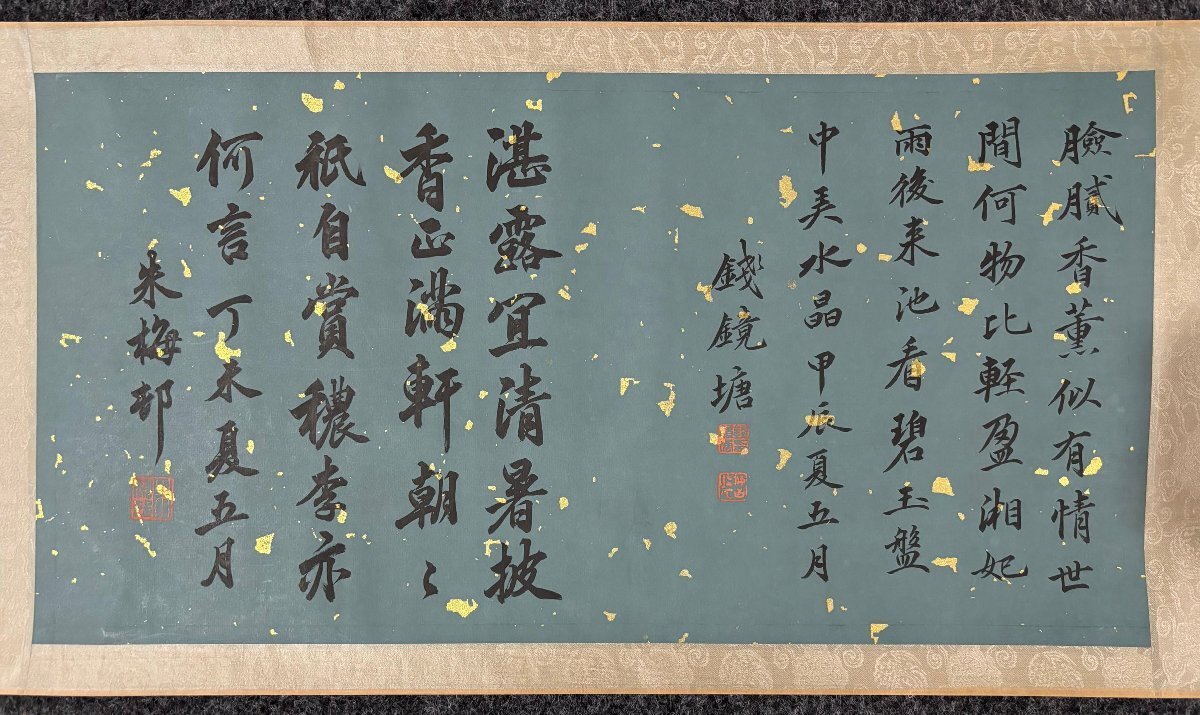 臉膩香薰似有情世
間何物比軽盈湘妃
雨後来池看碧玉盤
中美水晶甲辰夏五月
錢鏡塘
湛露宜清暑披
香正滿軒朝〻
祇自賞穠李亦
何言丁未夏五月
朱梅邨